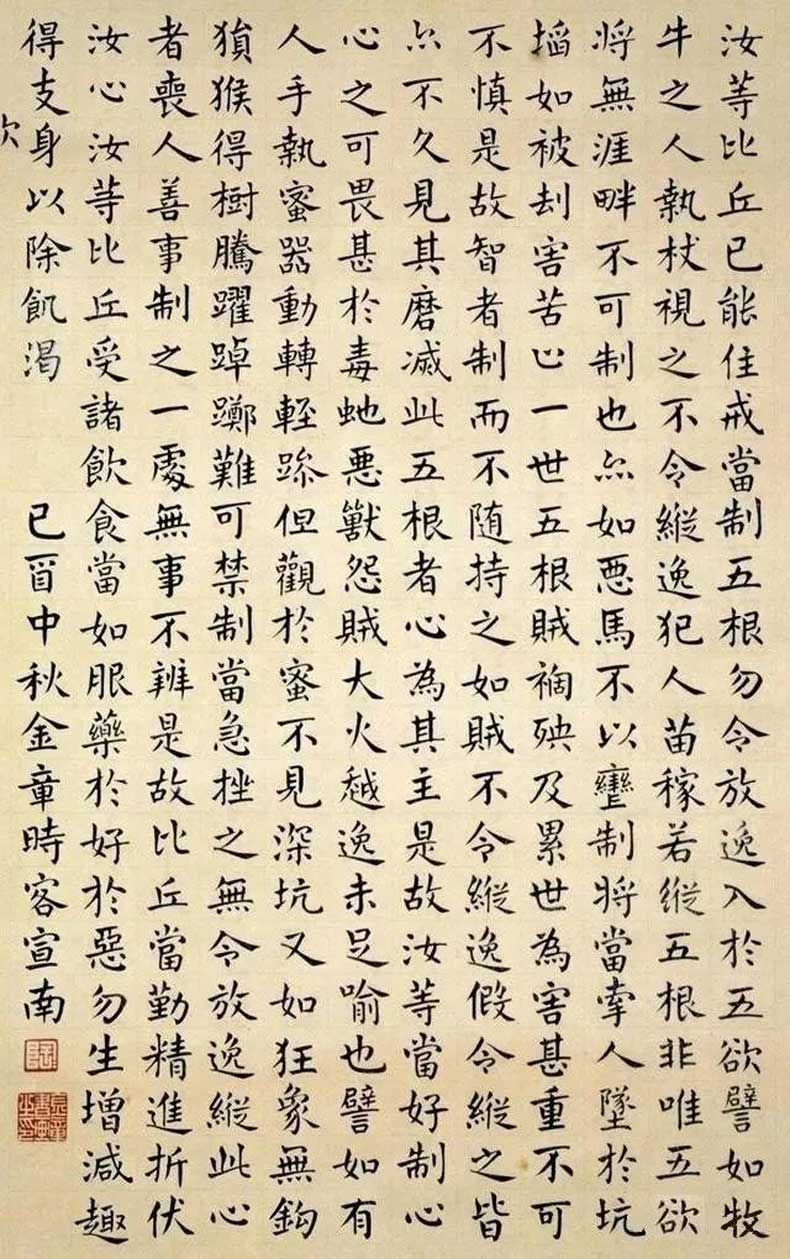 汝等比丘已能住戒當制五根勿令放逸入於五欲譬如牧
牛之人執杖視之不令縱逸犯人苗稼若縱五根非唯五欲
将無涯畔不可制也亦如惡馬不以轡制将當牽人墜於坑
埳如被刦害苦止一世五根賊禍殃及累世為害甚重不可
不慎是故智者制而不随持之如賊不令縱逸假令縱之皆
亦不久見其磨滅此五根者心為其主是故汝等當好制心
心之可畏甚於毒虵惡獸怨賊大火越逸未足喻也譬如有
人手執蜜器動轉輕躁但觀於蜜不見深坑又如狂象無鈎
猨猴得樹騰躍踔躑難可禁制當急挫之無令放逸縱此心
者喪人善事制之一處無事不辨是故比丘當勤精進折伏
汝心汝等比丘受諸飲食當如服藥於好於惡勿生增減趣
得支身以除飢渴 己酉中秋金章時客宣南